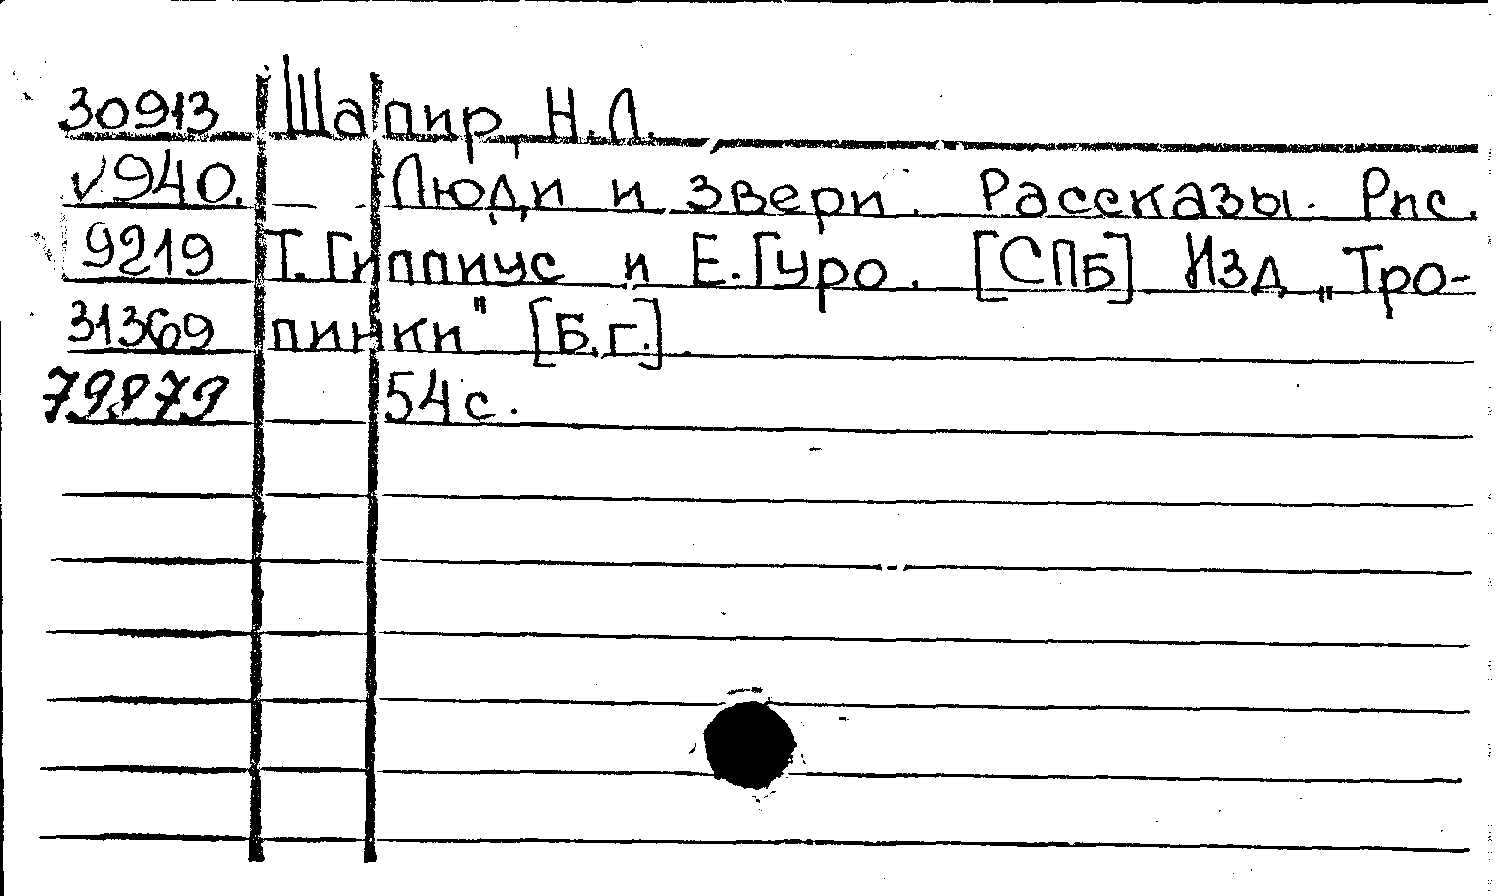 30913 Шапир, Н.Л.
v940. Люди и звери. Рассказы. Рис.
9219 Т. Гиппиус и Е. Гуро. [СПБ] Изд „Тро-
31369 пинки" [Б.г.].
79879 54 с.